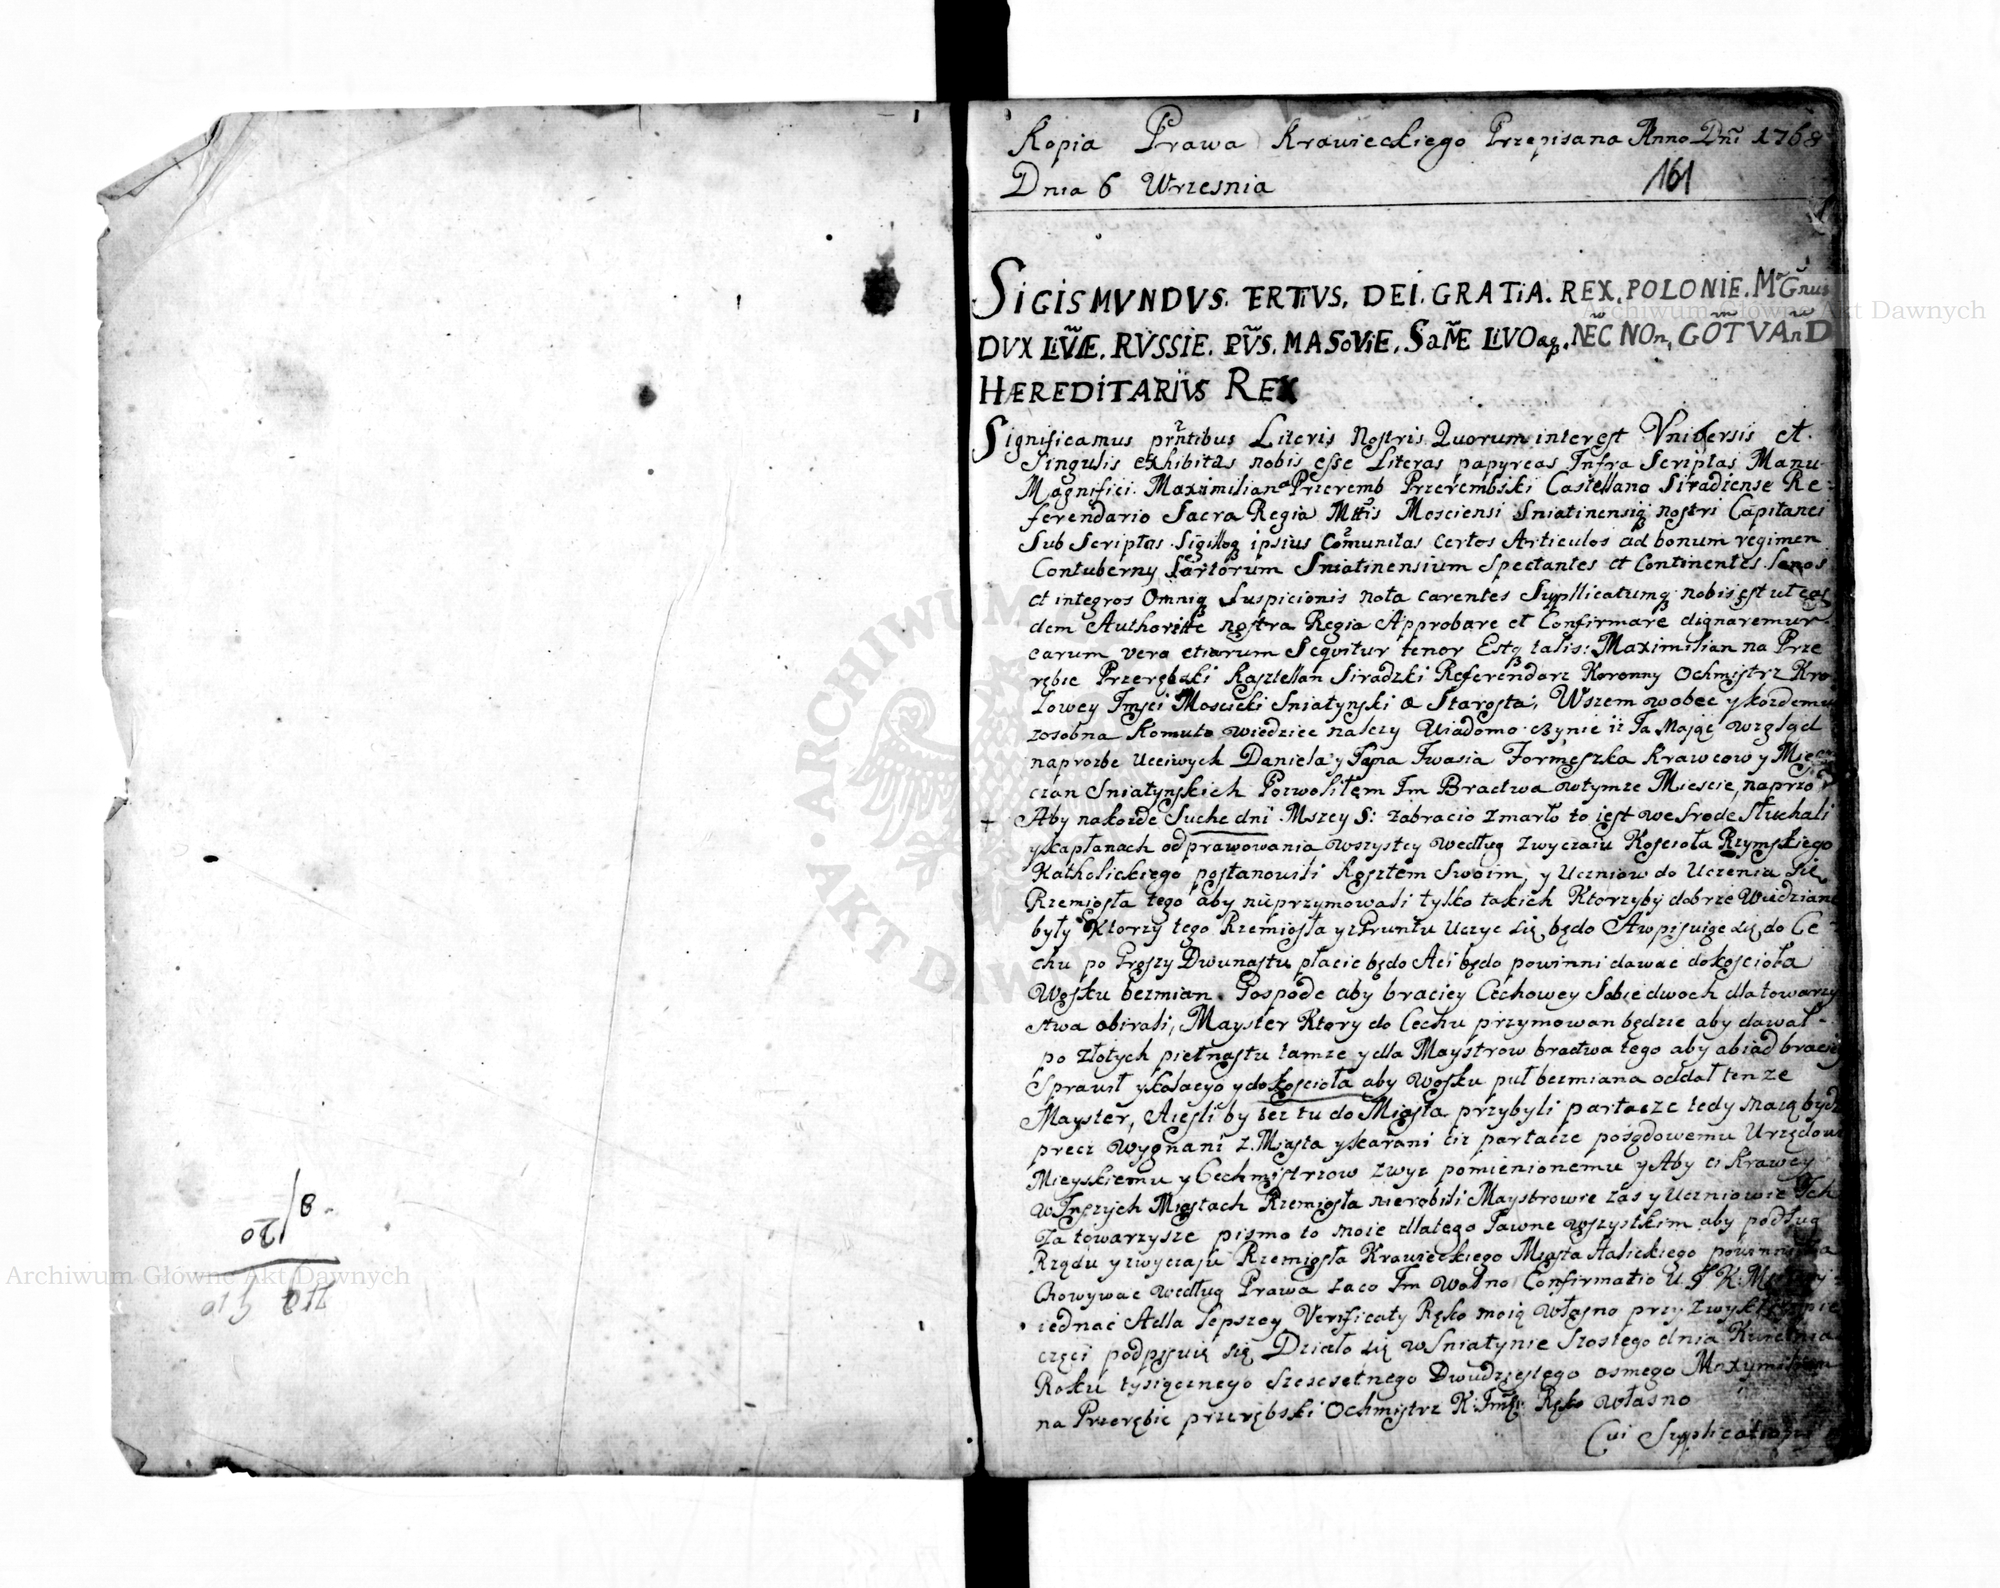 Kopia Prawa Krawieckiego Przepisana Anno Dni 1768
Dnia 6 Wrzesnia
161
1
SIGISMVNDVS. TERTIVS. DEI. GRATIA. REX. POLONIE. MaGnus
DVX LIVIÆ. RVSSIE. PVS. MASOVIE. SaME LIVOaq. NEC NOn, GOTVAnD
HÆREDITARIVS REX
Significamus prntibus Literis Nostris Quorum interest Vniversis et
Singulis exhibitas nobis esse Literas papyreas Infra Scriptas Manu
Magnifici Maximiliana Przeremb Przerembski Castellano Siradiense Re-
ferendario Sacra Regia Mttis Mosciensi Sniatinensiq nostri Capitanei
Sub Scriptas Sigilloq ipsius Comunitas certos Articulos ad bonum regimen
Contuberny Sartorum Sniatinensium Spectantes et Continentes Sanos
et integros Omniq Suspicionis nota carentes Supplicatumq nobis est ut eas
dem Authoritte nostra Regia Approbare et Confirmare dignaremur
earum vera etiarum Sequitur tenor Estq talis: Maximilian na Prze
rębie Przerębski Kasztellan Siradzki Referendarz Koronny Ochmistrz Kro
lowey Imsci Moscicki Sniatynski a Starosta; Wszem wobec y kozdemu
zosobna Komuto wiedziec nalezy Wiadomo czynie iz Ja Maiąc wzgląd
naprozbe Ucciwych Daniela y Jana Iwasia Formęszka Krawcow y Miesz
czan Sniatynskich Pozwolilem Im Bractwa wtymze Miescie, naprzod
+ Aby nakozde Suche dni Mszey S: zabracio Zmarło to iest we Srode Słuchali
y kapłanach odprawowania wszystcy według Zwyczaiu Koscioła Rzymskiego
Katholickiego postanowili Kosztem Swoim, y Uczniow do Uczenia się
Rzemiosła tego aby nieprzymowali tylko takich Ktorzyby dobrze Wiedziani
były Ktorzy tego Rzemiosła y z Gruntu Uczyc się będo A wpisuiąc się do Ce-
chu po Groszy Dwunastu płacic będo Aci będo powinni dawac dokoscioła
Wosku bezmian. Gospode aby braciey Cechowey Sobie dwoch dla towarzy
stwa obirali, Mayster Ktory do Cechu przymowan będzie aby dawał -
po złotych pietnastu tamze y dla Maystrow bractwa tego aby abiad braciey
Sprawił y kolacyo y dokoscioła aby wosku puł bezmiana oddał tenze
Mayster, Aiesliby tez tu do Miasta przybyli partacze tedy maią bydz
precz wygnani z Miasta y karani ciz partacze posądowemu Urzędowi
Mieyskiemu y Cechmistrzow zwyz pomienionemu y Aby ci Krawcy
w Inszych Miastach Rzemiosła nierobili Maystrowie zas y Uczniowie Ich
Za towarzysze pismo to moie dlatego Jawne wszystkim aby podług
Rządu y zwyczaju Rzemiosła Krawieckiego Miasta Halickiego powinni Za
Chowywac według Prawa zaco Im wolno Confirmatio U J K Mosci wy-
iednac Adla lepszey Verificaty Ręko moią własno przy Zwykłey pie
częci podpisuię się Działo się w Sniatynie Szostego dnia Kwietnia
Roku tysiącznego Szescsetnego Dwudziestego osmego Maxymilian
na Przerębie przerębski Ochmistrz K: Imsci: Ręko własno
Cui Supplicationi
8
20